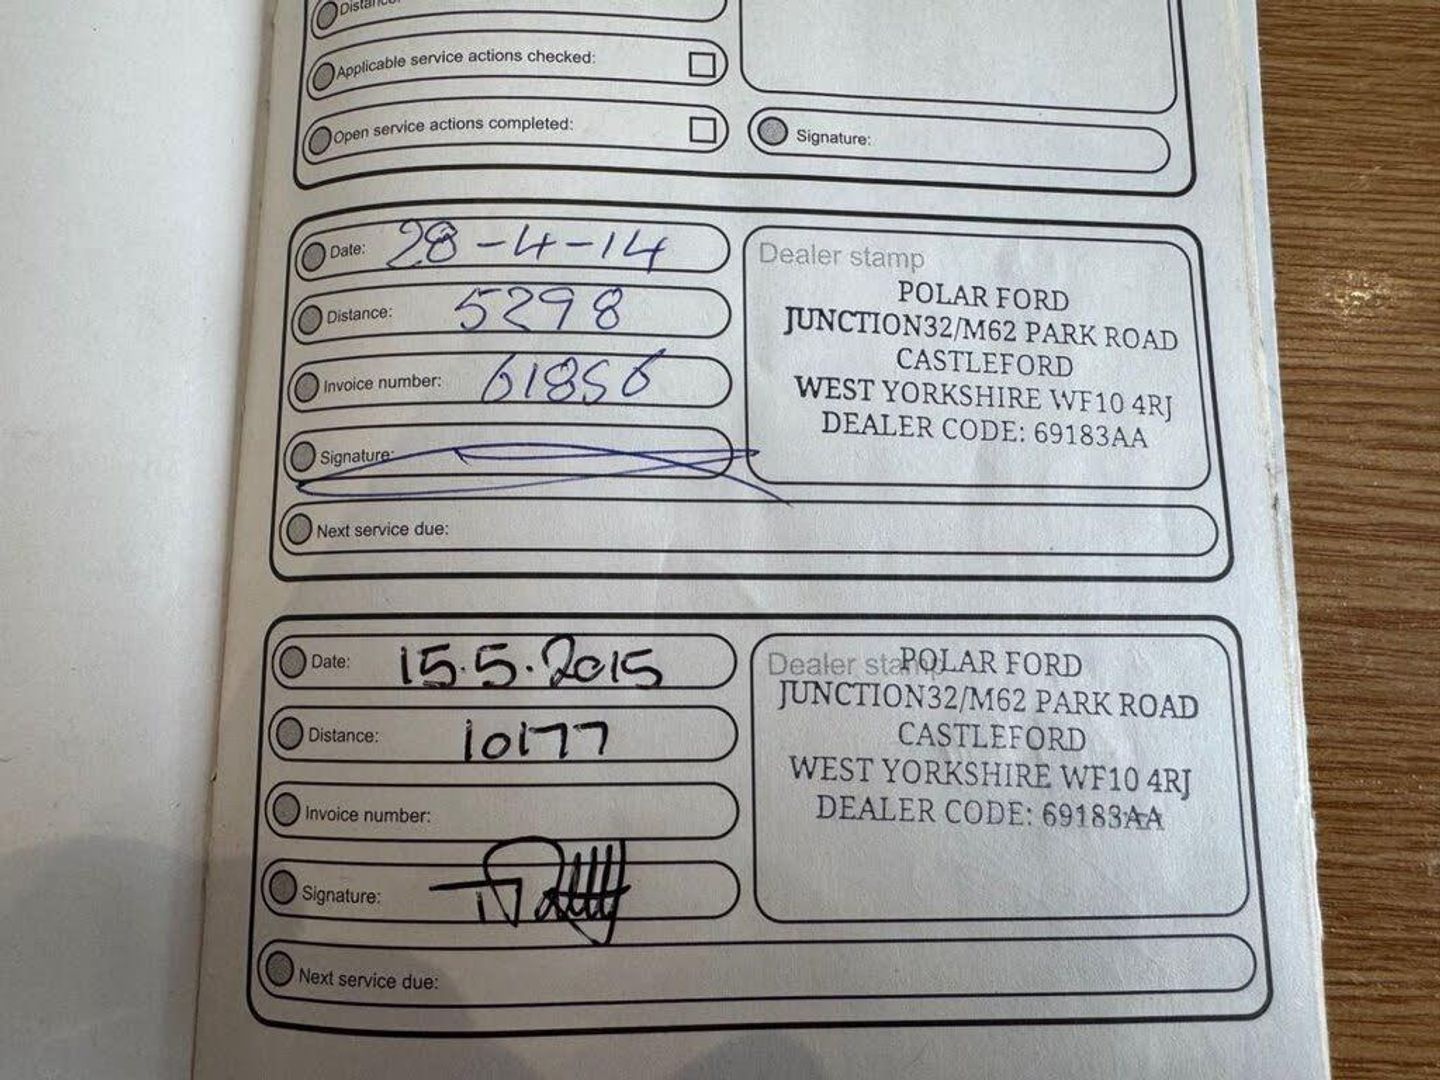 Distance:
Applicable service actions checked:
Open service actions completed:
Signature:
Date: 28-4-14
Distance: 5298
Invoice number: 61856
Signature:
Next service due:
Dealer stamp
POLAR FORD
JUNCTION32/M62 PARK ROAD
CASTLEFORD
WEST YORKSHIRE WF10 4RJ
DEALER CODE: 69183AA
Date: 15.5.2015
Distance: 10177
Invoice number:
Signature:
Next service due:
Dealer stamp
POLAR FORD
JUNCTION32/M62 PARK ROAD
CASTLEFORD
WEST YORKSHIRE WF10 4RJ
DEALER CODE: 69183AA